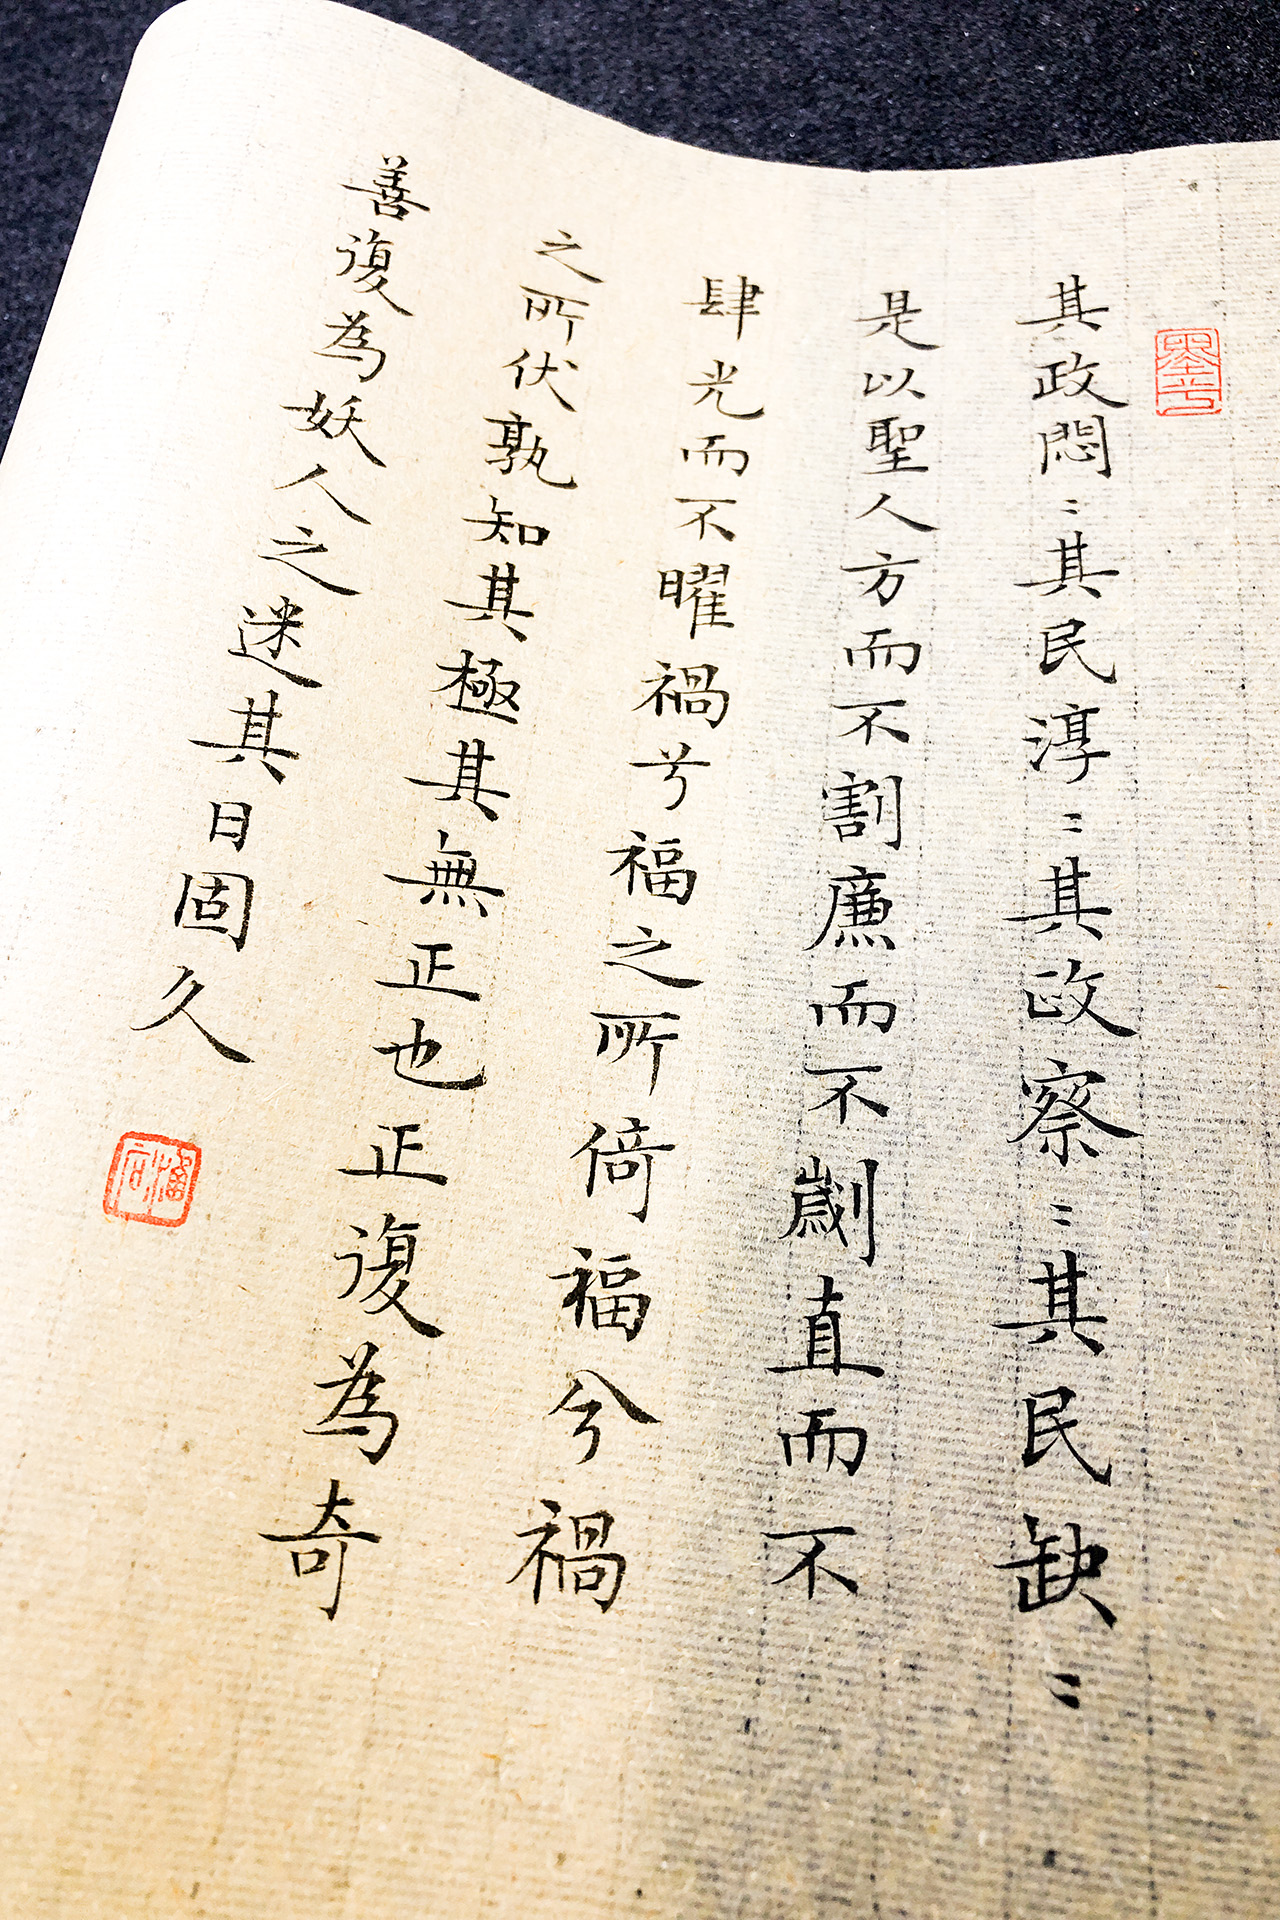 其政悶〻其民淳〻其政察〻其民缺〻
是以聖人方而不割廉而不劌直而不
肆光而不曜禍兮福之所倚福兮禍
之所伏孰知其極其無正也正復為奇
善復為妖人之迷其日固久